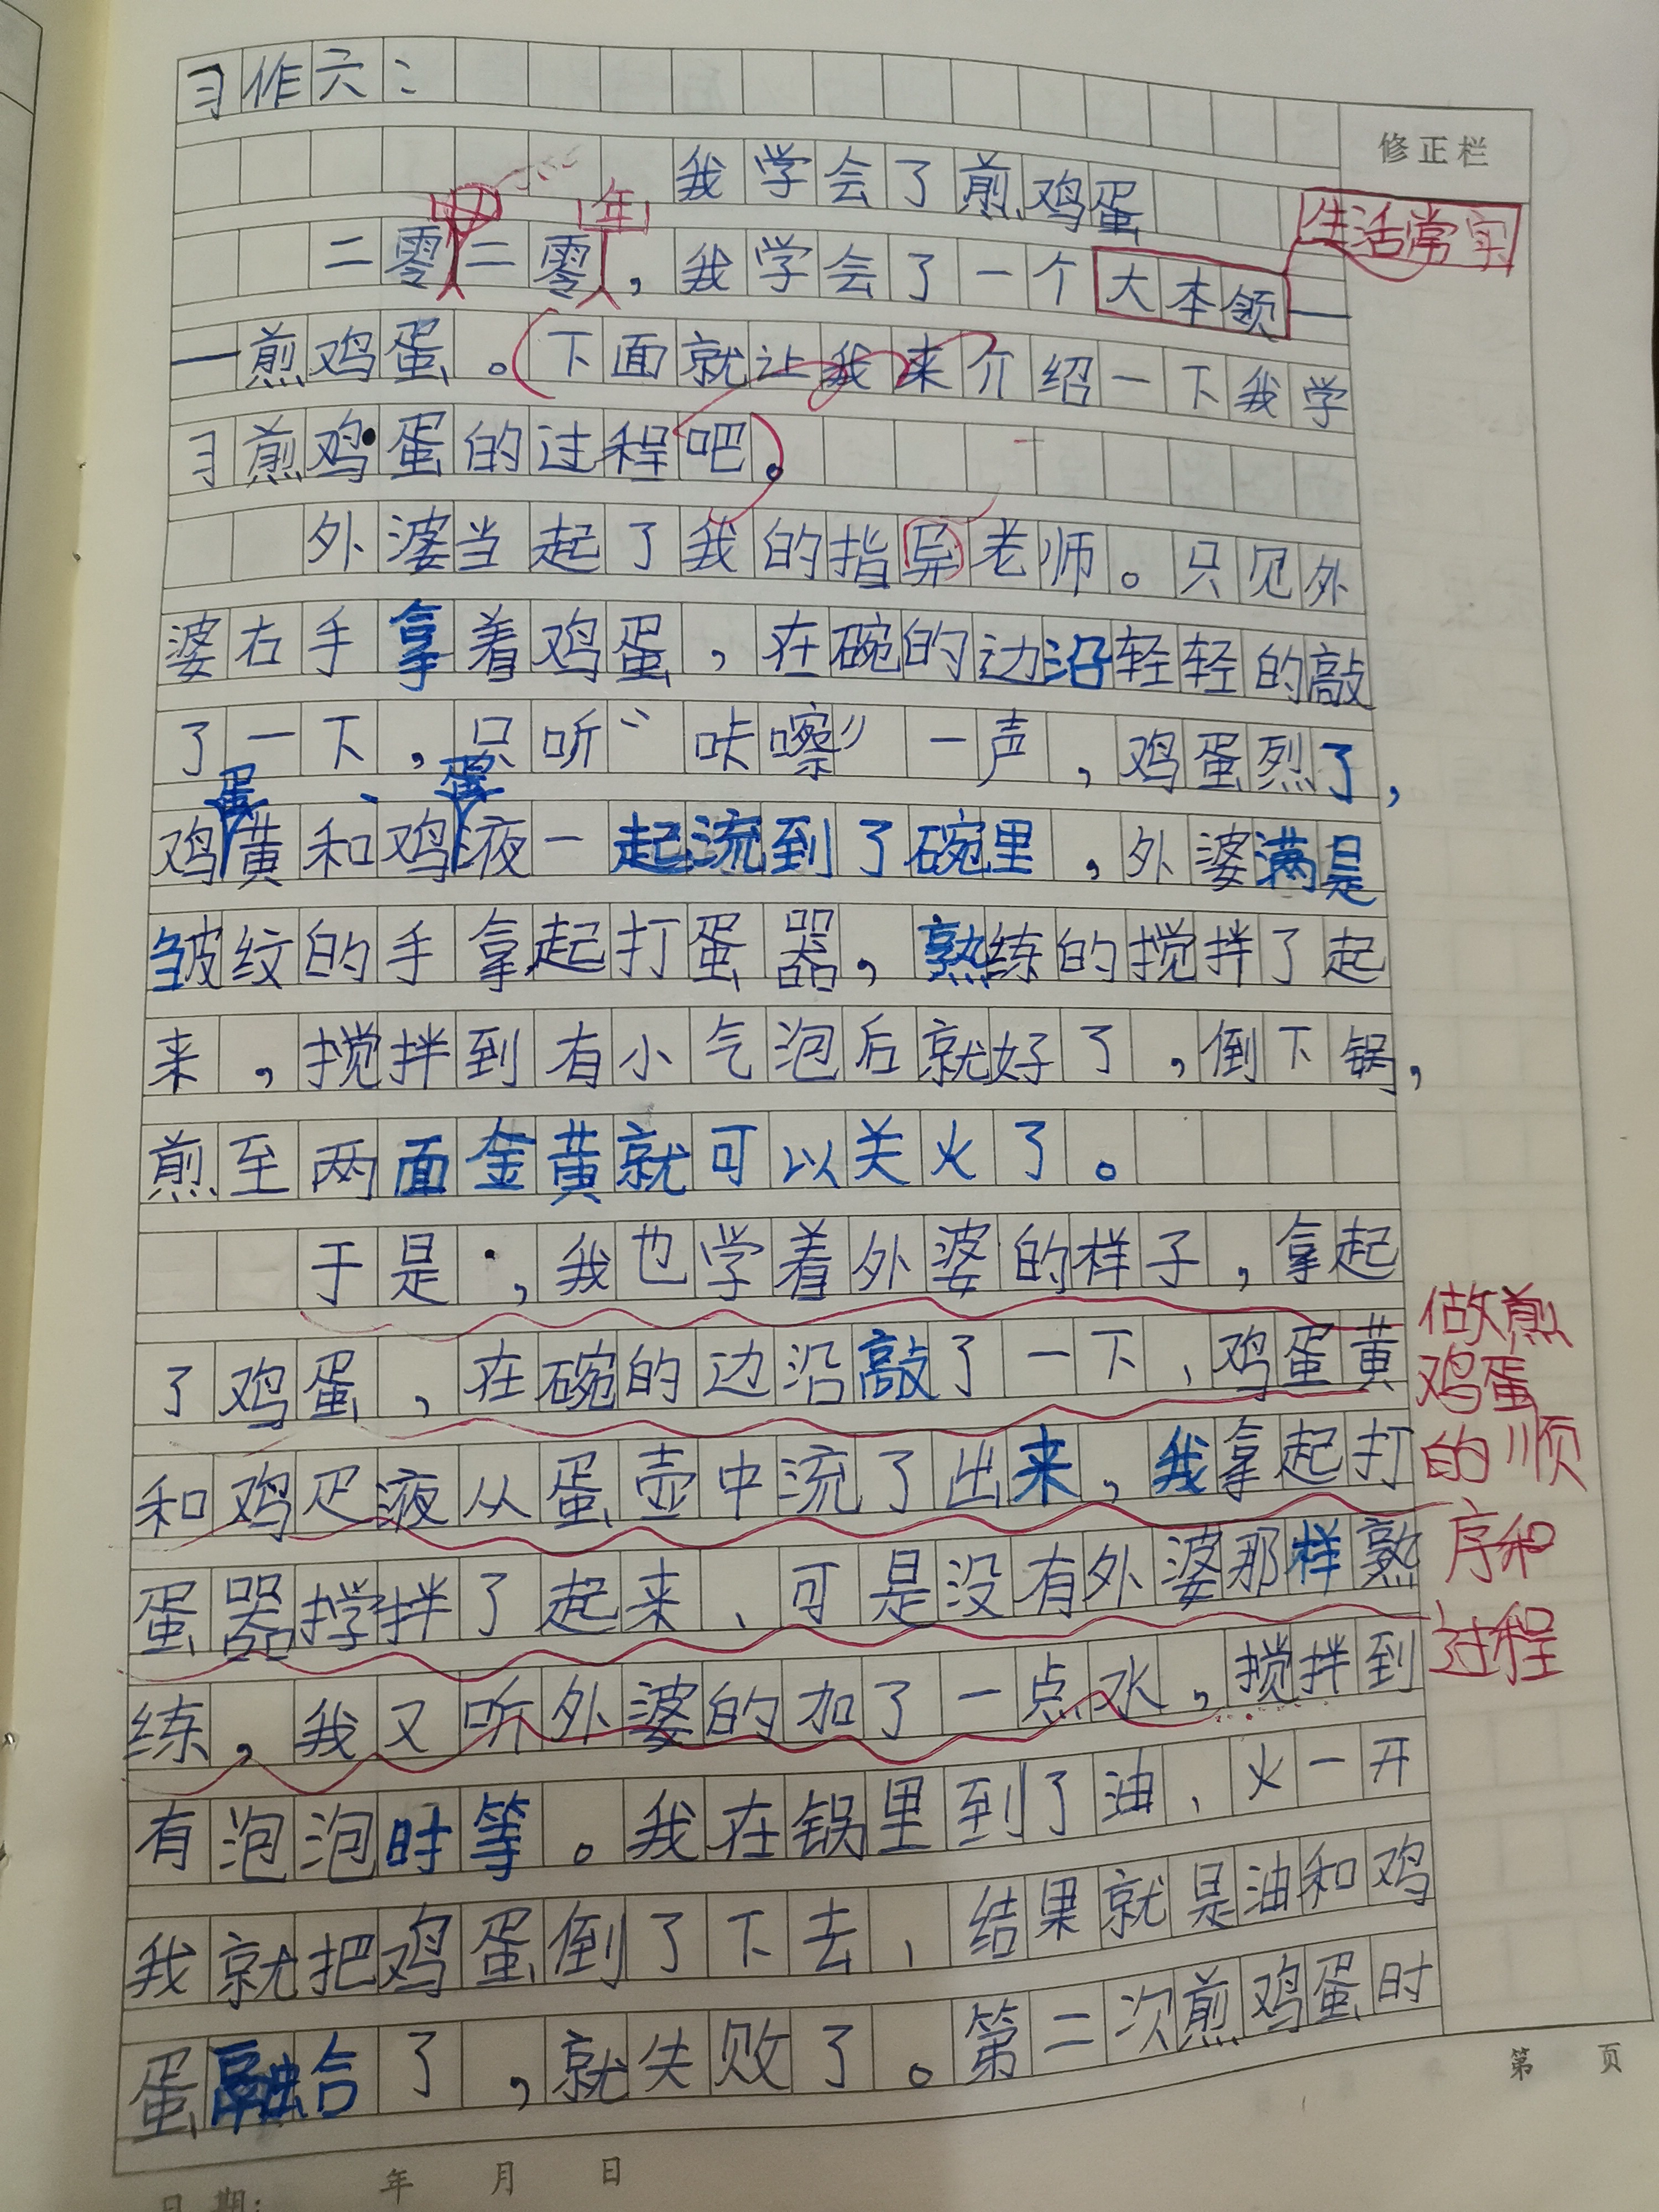 习作六：
修正栏
我学会了煎鸡蛋
年
生活常实
二零二零，我学会了一个大本领—
—煎鸡蛋。下面就让我来介绍一下我学
习煎鸡蛋的过程吧。
外婆当起了我的指导老师。只见外
婆右手拿着鸡蛋，在碗的边沿轻轻的敲
了一下，只听“咔嚓”一声，鸡蛋烈了，
蛋、蛋
鸡黄和鸡液一起流到了碗里，外婆满是
皱纹的手拿起打蛋器，熟练的搅拌了起
来，搅拌到有小气泡后就好了，倒下锅，
煎至两面金黄就可以关火了。
于是，我也学着外婆的样子，拿起
了鸡蛋，在碗的边沿敲了一下、鸡蛋黄
和鸡疋液从蛋壶中流了出来，我拿起打
蛋器搅拌了起来、可是没有外婆那样熟
练，我又听外婆的加了一点水，搅拌到
有泡泡时等。我在锅里到了油、火一开
我就把鸡蛋倒了下去、结果就是油和鸡
蛋融合了，就失败了。第二次煎鸡蛋时
做煎
鸡蛋
的顺
序和
过程
第 页
日期： 年 月 日